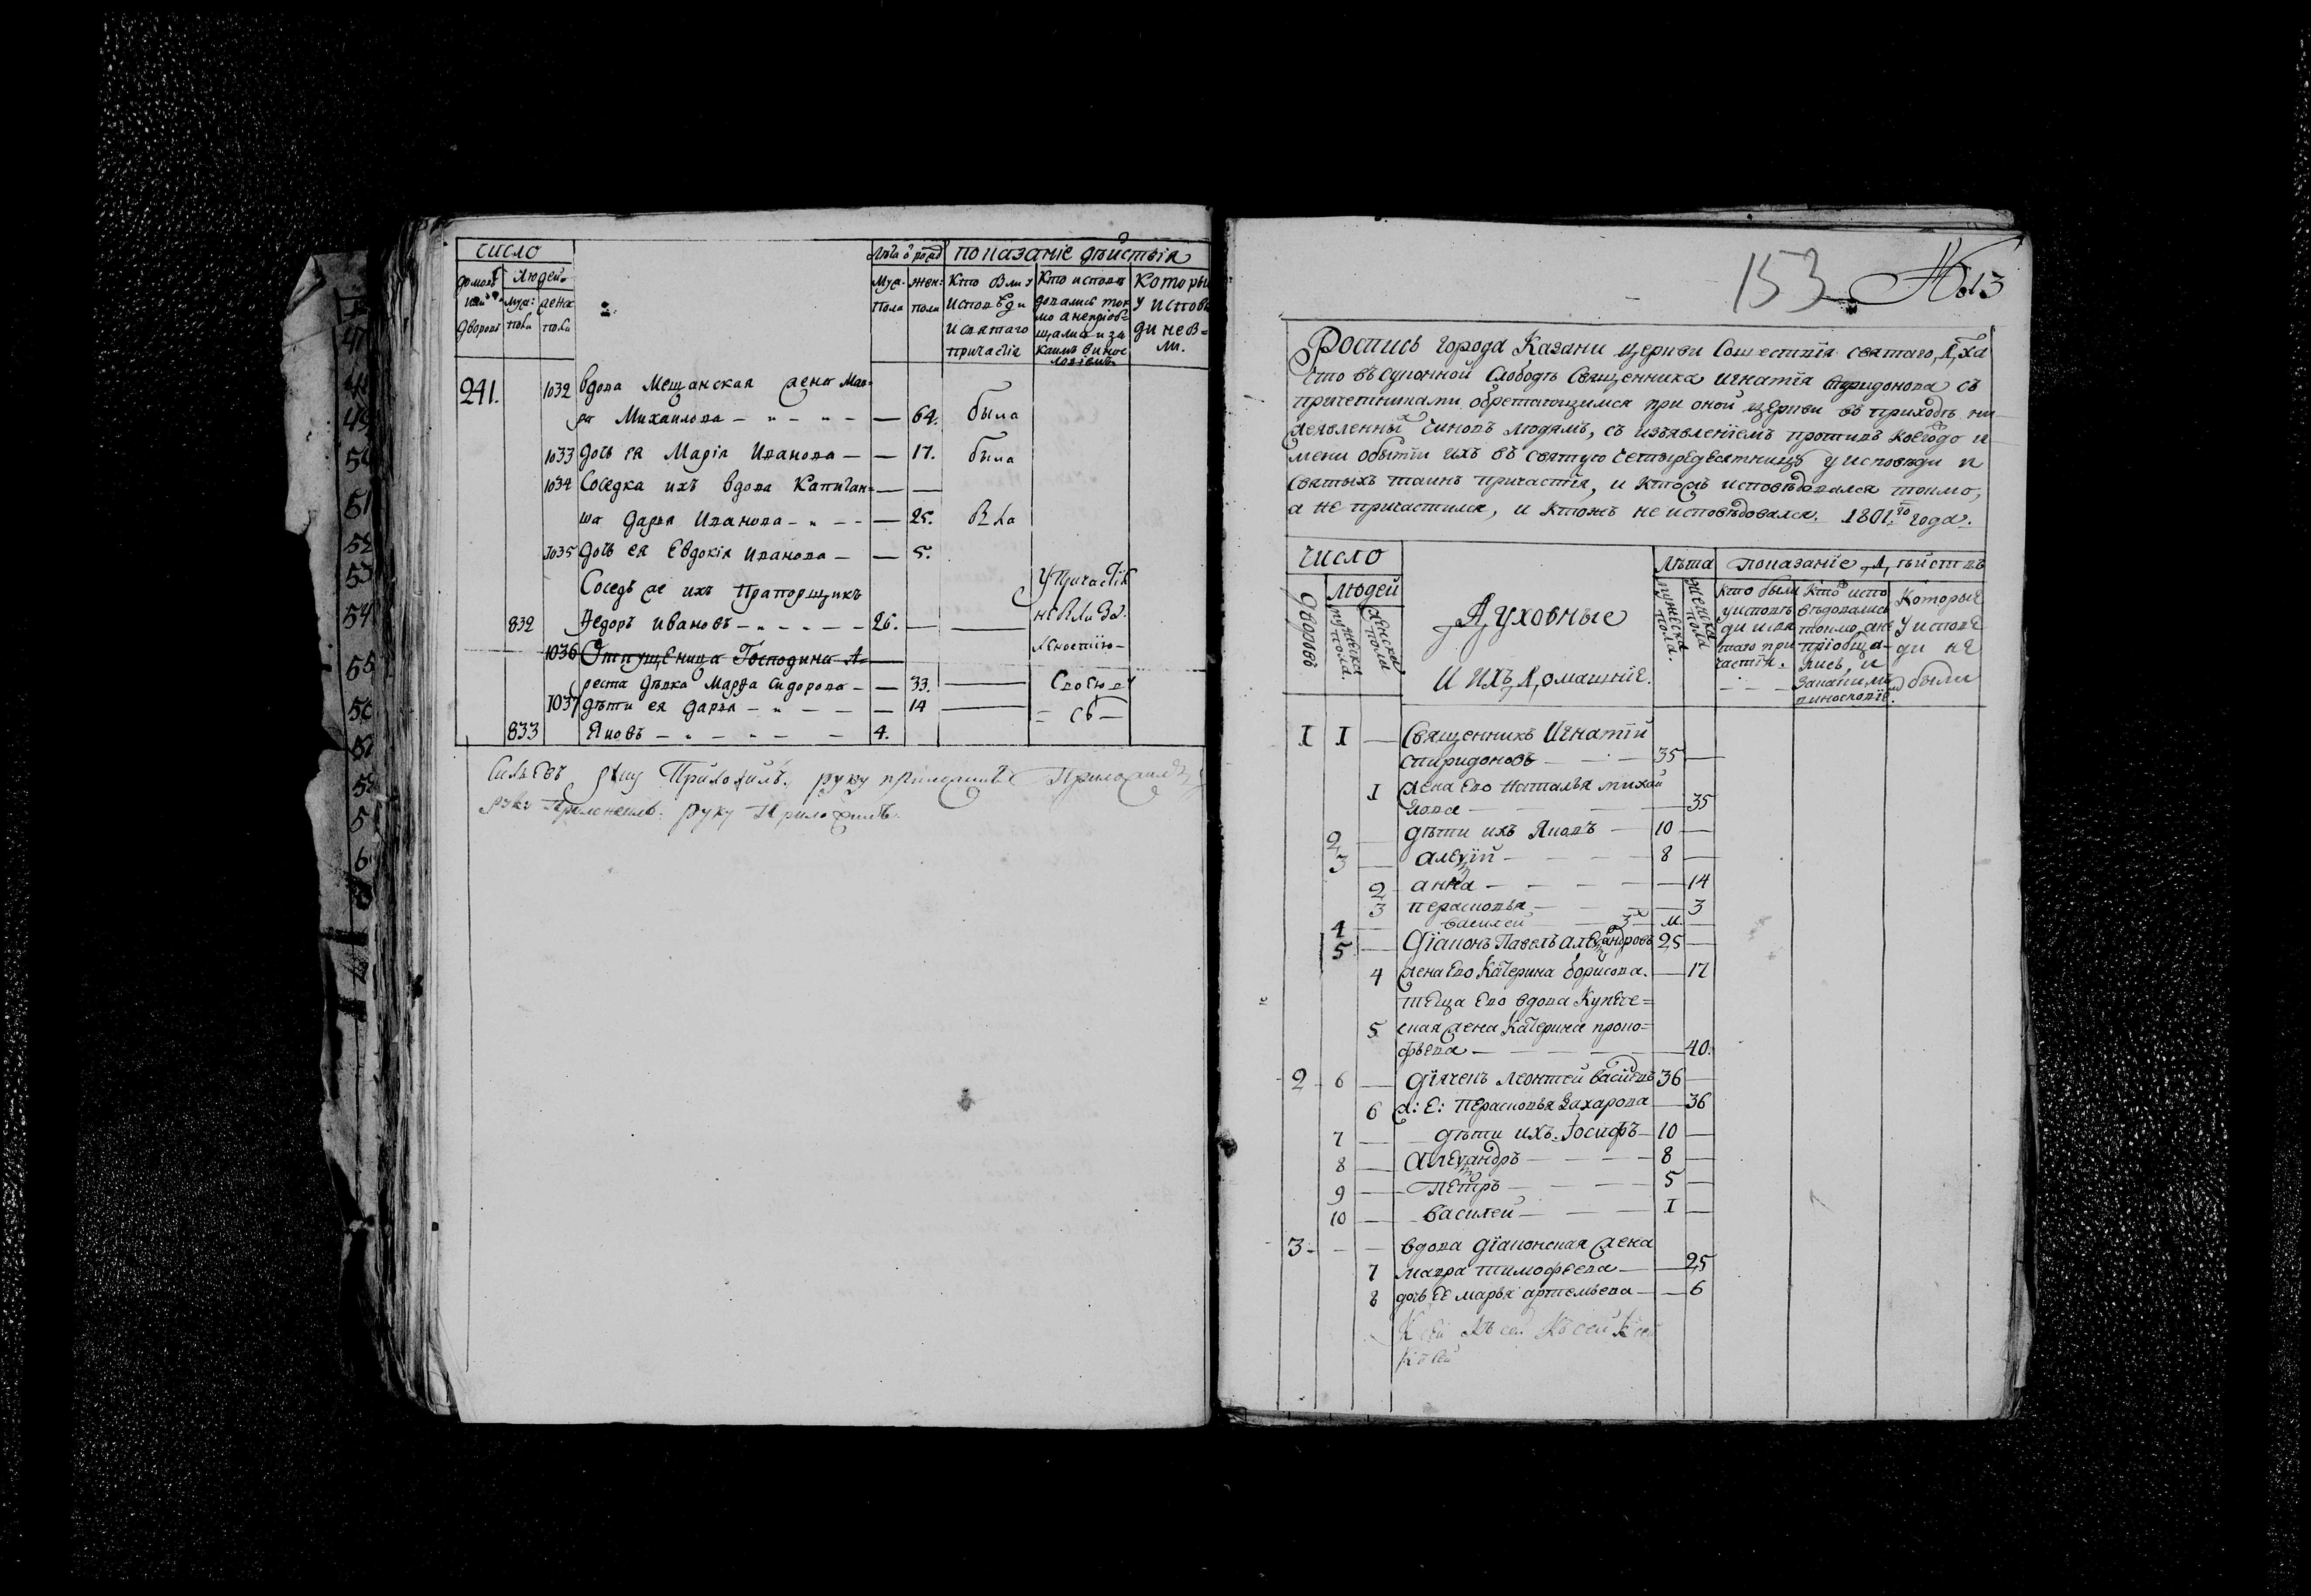 число
Лѣта ѿ рожд
показаніе дѣйствія
домовъ или дворовъ
людей
муж: пола
жена пола
Муж: пола
жен: пола
Кто были у исповѣди и святаго причастія
Кто исповѣдовались токмо а непріобщались и за каимъ винословіемъ
Которы у исповѣди не были.
241.
1032 вдова Мещанская жена Мав=
ра Михаилова — — 64. была
1033 дочь ея Марія Иванова — — 17. была
1034 Соседка ихъ вдова Капитан= —
ша Дарья Иванова — — 25. была
1035 дочь ея Евдокія Иванова — — 5.
Соседъ же ихъ Прапорщикъ у причастія
832 Ѳедоръ ивановъ — 26. — не были за
1036 Отпущеница Господина А— лѣностію —
реста дѣвка Марѳа Сидорова — — 33. —
1037 дѣти ея Дарья — — 14 —
833 Яковъ — 4.
руку Приложилъ. руку приложилъ Приложилъ
руку Приложилъ. руку Приложилъ.
153 № 13
Роспись города Казани Церкви Сошествія святаго Дха
что въ суконной слободѣ Священника Игнатія Спиридонова съ
причетниками обретающимся при оной Церкви въ приходѣ ни
жеявленныхъ чиновъ людямъ, съ изъявленіемъ противъ коегождо и
мени о бытіи ихъ въ святую четыредесятницу у исповѣди и
святыхъ таинъ причастія, и ктожъ исповѣдовался токмо,
а не причастился, и ктожъ не исповѣдовался. 1801.го года.
число
Лѣта
показаніе дѣйствъ
дворовъ
людей
мужеска пола
женска пола
Духовные
и ихъ домашніе.
мужеска пола.
женска пола
кто были у исповѣди и святаго причастія.
кто исповѣдовались токмо а не пріобщались, и за каимъ винословіе.
Которые у исповѣди не были
I I — Священникъ Игнатій
Спиридоновъ — 35 —
I жена ево Наталья михай
лова — — 35
2 — дѣти ихъ Яковъ — 10 —
3 — алеѯій — 8 —
2 анна — — 14
3 парасковья — — 3
4 — василей — 3 м —
5 — діаконъ Павелъ алеѯандровъ 25 —
4 жена ево Катерина борисова. — 17
теща ево вдова Купече=
5 ская жена Катерина проко=
фьева — — 40.
2 6 — дьячекъ леонтей васильевъ 36 —
6 ж: е: парасковья Захарова — 36
7 — дѣти ихъ. Іосифъ — 10 —
8 — алеѯандръ — 8 —
9 — петръ — 5 —
10 — василей — I —
3 — — вдова діаконская жена
7 мавра тимофеева — — 25
8 дочь ее марья артемьева — — 6
К сей къ сей Къ сей К сей
Къ сей